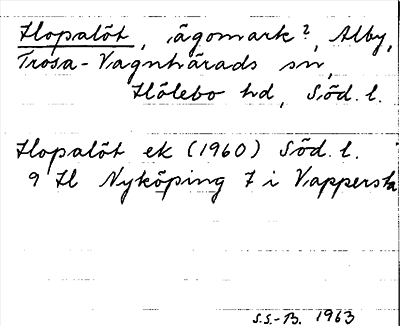 Hopalöt, ägomark?, Alby,
Trosa-Vagnhärads sn,
Hölebo hd, Söd. l.
Hopalöt ek (1960) Söd. l.
9 H Nyköping 7 i Vappersta
S.S.-B. 1963